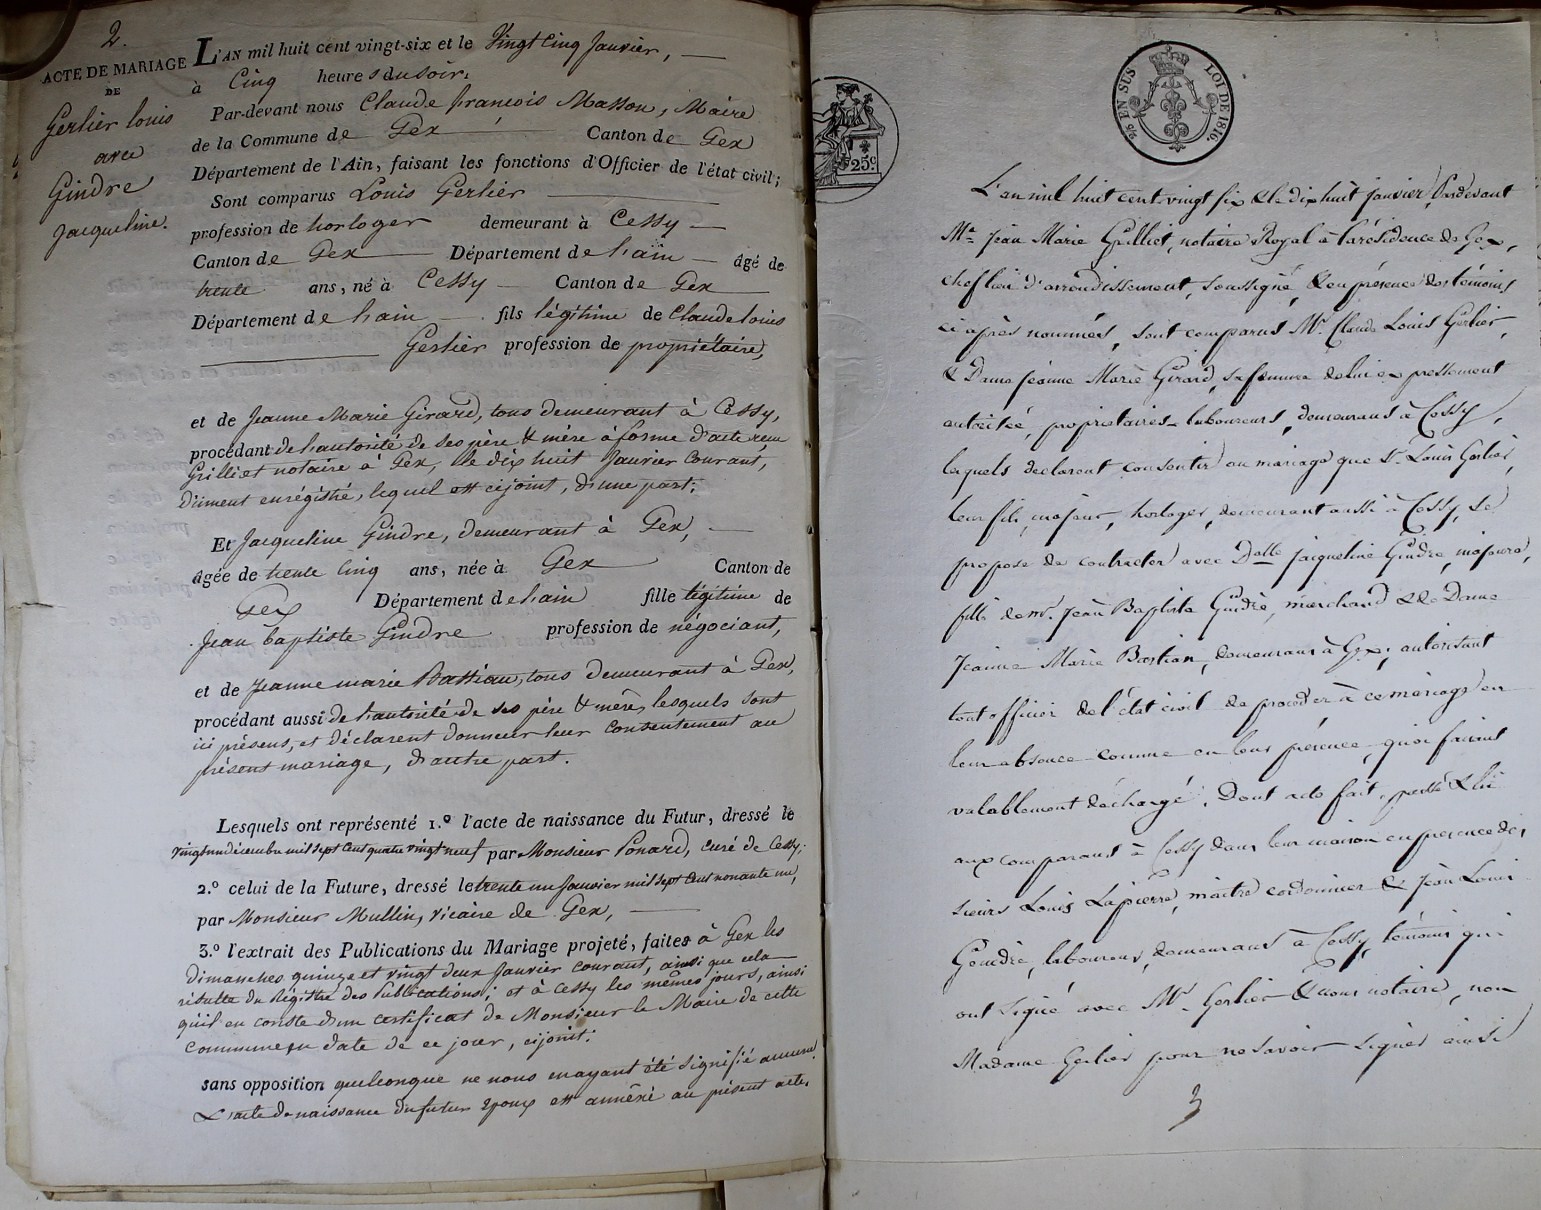 2.
ACTE DE MARIAGE
DE
Gerlier louis
avec
Gindre
jacqueline.
L'AN mil huit cent vingt-six et le Vingt Cinq Janvier,
à Cinq heures du soir,
Par-devant nous Claude francois Masson, Maire
de la Commune de Gex Canton de Gex
Département de l'Ain, faisant les fonctions d'Officier de l'état civil;
Sont comparus Louis Gerlier
profession de horloger demeurant à Cessy
Canton de Gex Département de l'ain âgé de
trente ans, né à Cessy Canton de Gex
Département de l'ain fils légitime de Claude louis
Gerlier profession de propriétaire,
et de Jeanne Marie Girard, tous demeurant à Cessy,
procédant de l'autorité de ses père & mère à forme d'acte reçu
Grilliet notaire à Gex, le dix huit Janvier Courant,
duement enrégistré, lequel est cijoint, d'une part;
Et Jacqueline Gindre, demeurant à Gex,
âgée de trente Cinq ans, née à Gex Canton de
Gex Département de l'ain fille légitime de
Jean baptiste Gindre profession de négociant,
et de Jeanne marie Bastian, tous demeurant à Gex,
procédant aussi de l'autorité de ses père & mère, lesquels sont
ici présens, et déclarent donner leur consentement au
présent mariage, d'autre part.
Lesquels ont représenté 1.º l'acte de naissance du Futur, dressé le
vingt un décembre mil sept cent quatre vingt neuf par Monsieur Ponard, curé de Cessy;
2.º celui de la Future, dressé le trente un Janvier mil sept Cent nonante un,
par Monsieur Mullin, vicaire de Gex,
3.º l'extrait des Publications du Mariage projeté, faites à Gex les
Dimanches quinze et vingt deux Janvier courant, ainsi que cela
résulte du Régistre des Publications; et à Cessy les mêmes jours, ainsi
qu'il en conste d'un certificat de Monsieur le Maire de cette
commune en date de ce jour, cijoint;
sans opposition quelconque ne nous en ayant été signifié aucune.
L'acte de naissance du futur époux est annéxé au présent acte.
25c
25 EN SUS LOI DE 1816.
L'an mil huit cent vingt six & le dix huit janvier, Pardevant
Me Jean Marie Grilliet, notaire Royal à la résidence de Gex,
chef lieu d'arrondissement, soussigné, & en présence des témoins
ci après nommés, sont comparus Mr Claude Louis Gerlier,
& Dame Jeanne Marie Girard, sa femme de lui expressement
autorisée, propriétaires laboureurs, demeurans à Cessy,
lesquels déclarent consentir au mariage que Sr Louis Gerlier,
leur fils, majeur, horloger, demeurant aussi à Cessy, se
propose de contracter avec Delle Jacqueline Gindre, majeure,
fille de Mr Jean Baptiste Gindre, marchand & de Dame
Jeanne Marie Bastian, demeurans à Gex; autorisant
tout officier de l'état civil de procéder à ce mariage en
leur absence comme en leur présence, quoi faisant
valablement déchargé. Dont acte fait, passé & lu
aux comparans à Cessy dans leur maison en présence des
sieurs Louis Lapierre, maitre cordonnier & Jean Louis
Goudre, laboureur, demeurans à Cessy, témoins qui
ont signé avec Mr Gerlier & nous notaire, non
Madame Gerlier pour ne savoir signer ainsi